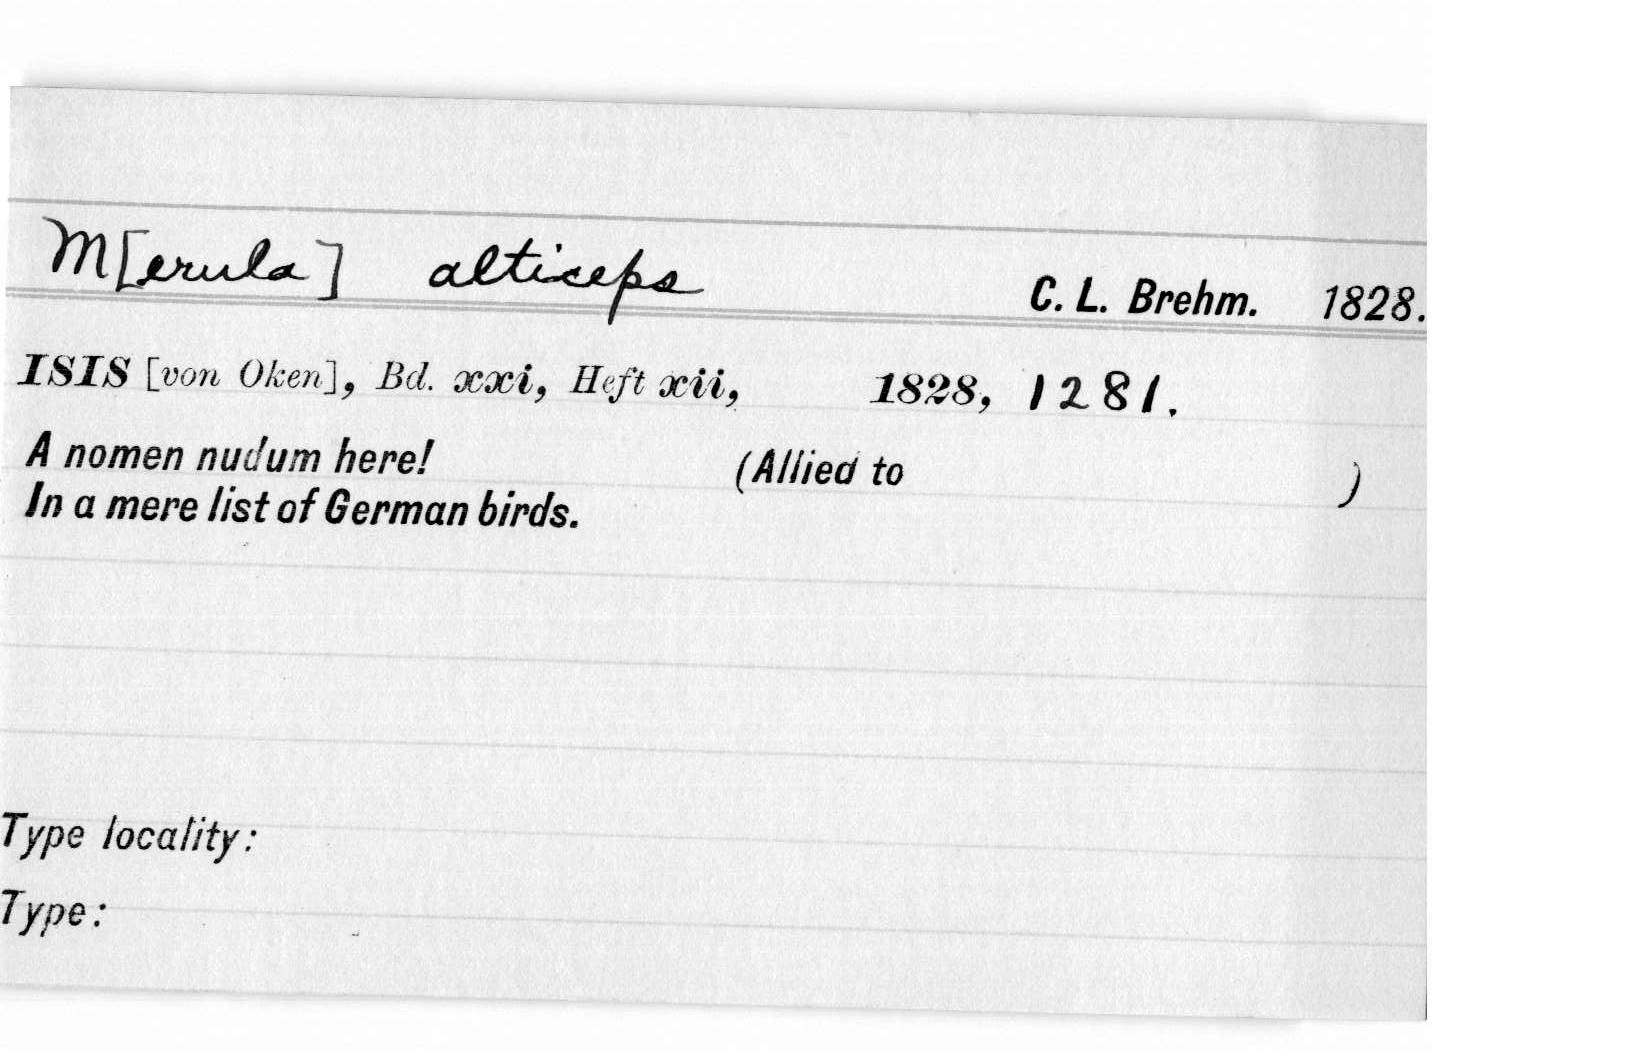 M[erula] alticeps C. L. Brehm. 1828.
ISIS [von Oken], Bd. xxi, Heft xii, 1828, 1281.
A nomen nudum here! (Allied to )
In a mere list of German birds.
Type locality:
Type: